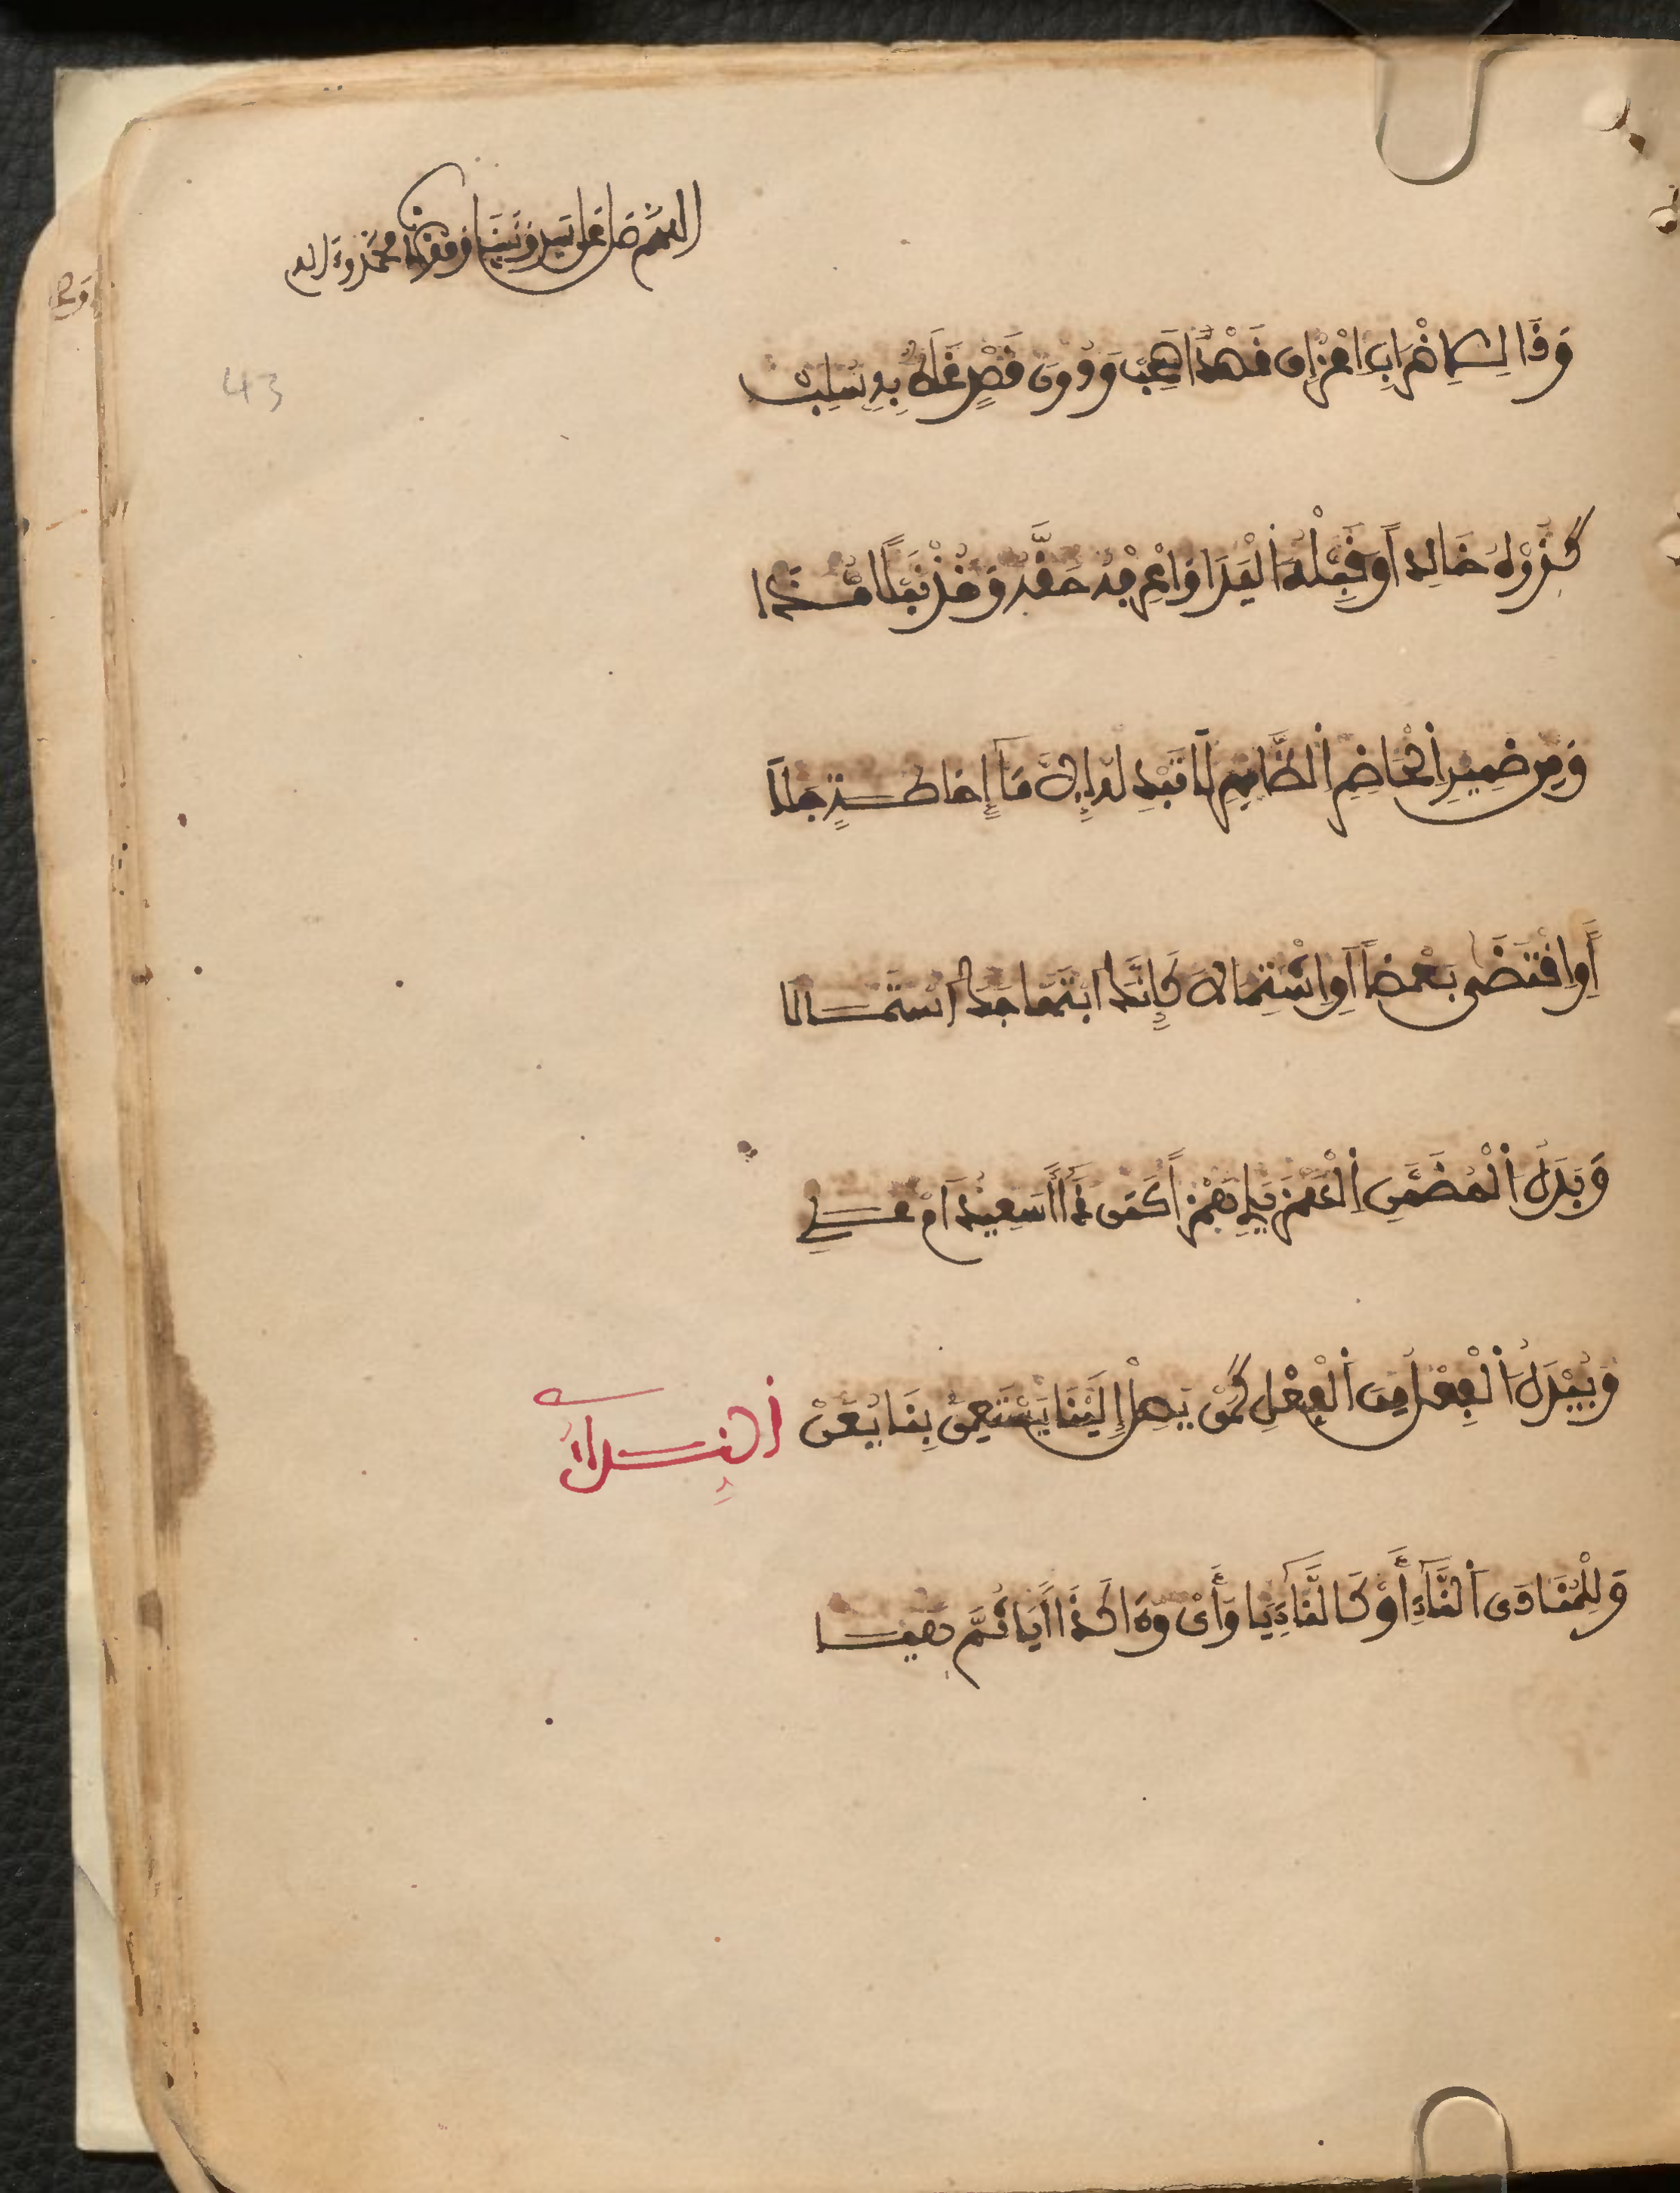 اللهم صل على سيدنا ونبينا ومولانا محمد وءاله
43
وَذَا لِلِاضْرَابِ اعْزُ إِن قَصْدًا صَحِبْ وَدُونَ قَصْدٍ غَلَطٌ بِهِ سُلِبْ
كَزُرْهُ خَالِدًا وَقَبِّلْهُ الْيَدَا وَاعْرِفْهُ حَقَّهُ وَخُذْ نَبْلًا مُدَى
وَمِن ضَمِيرِ الْحَاضِرِ الظَّاهِرَ لَا تُبْدِلْهُ إِلَّا مَا إِحَاطَةً جَلَا
أَوِ اقْتَضَى بَعْضًا أَوِ اشْتِمَالَا كَإِنَّكَ ابْتِهَاجَكَ اسْتَمَالَا
وَبَدَلُ الْمُضَمَّنِ الْهَمْزَ يَلِي هَمْزًا كَمَن ذَا أَسَعِيدٌ أَمْ عَلِي
وَيُبْدَلُ الْفِعْلُ مِنَ الْفِعْلِ كَمَنْ يَصِلْ إِلَيْنَا يَسْتَعِنْ بِنَا يُعَنْ
النِّدَاءُ
وَلِلْمُنَادَى النَّاءِ أَوْ كَالنَّاءِ يَا وَأَيْ وَءَا كَذَا أَيَا ثُمَّ هَيَا